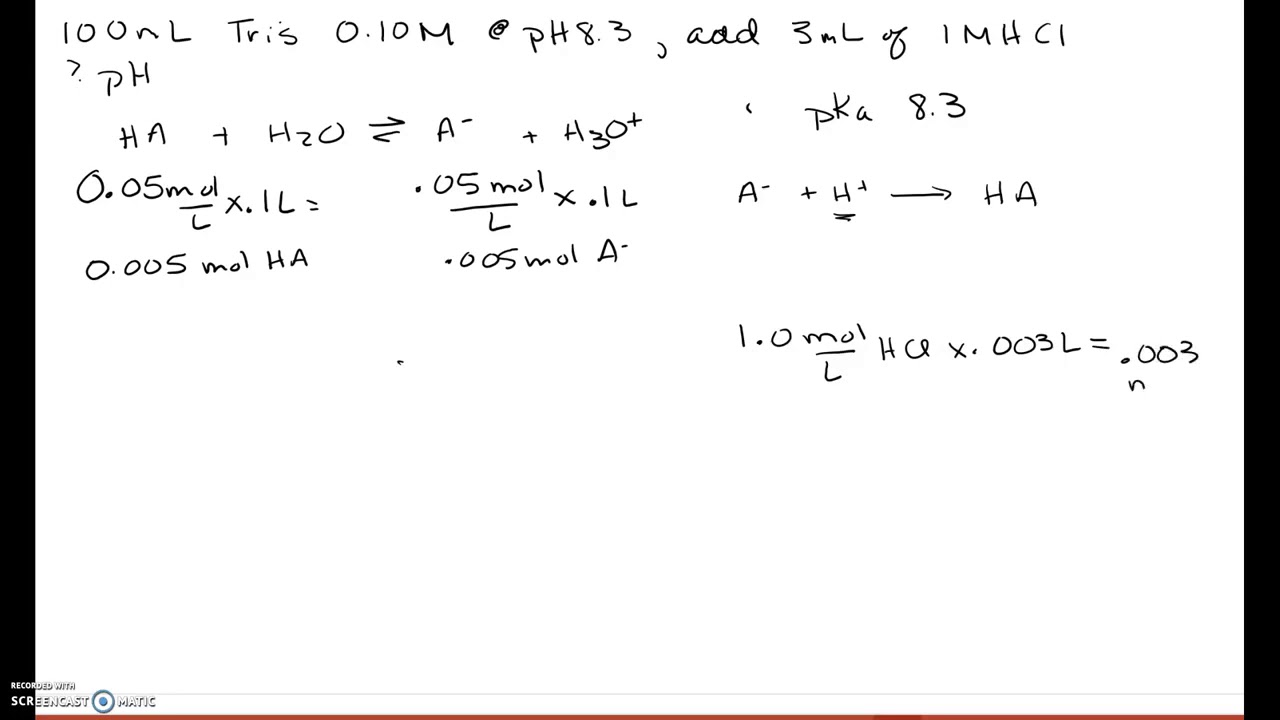 100mL Tris 0.10M @ pH 8.3, add 3mL of 1M HCl
? pH
HA + H2O ⇌ A- + H3O+
pKa 8.3
0.05 mol/L x .1L =
.05 mol/L x .1L
A- + H+ → HA
0.005 mol HA
.005 mol A-
1.0 mol/L HCl x .003L = .003
n
RECORDED WITH
SCREENCAST MATIC